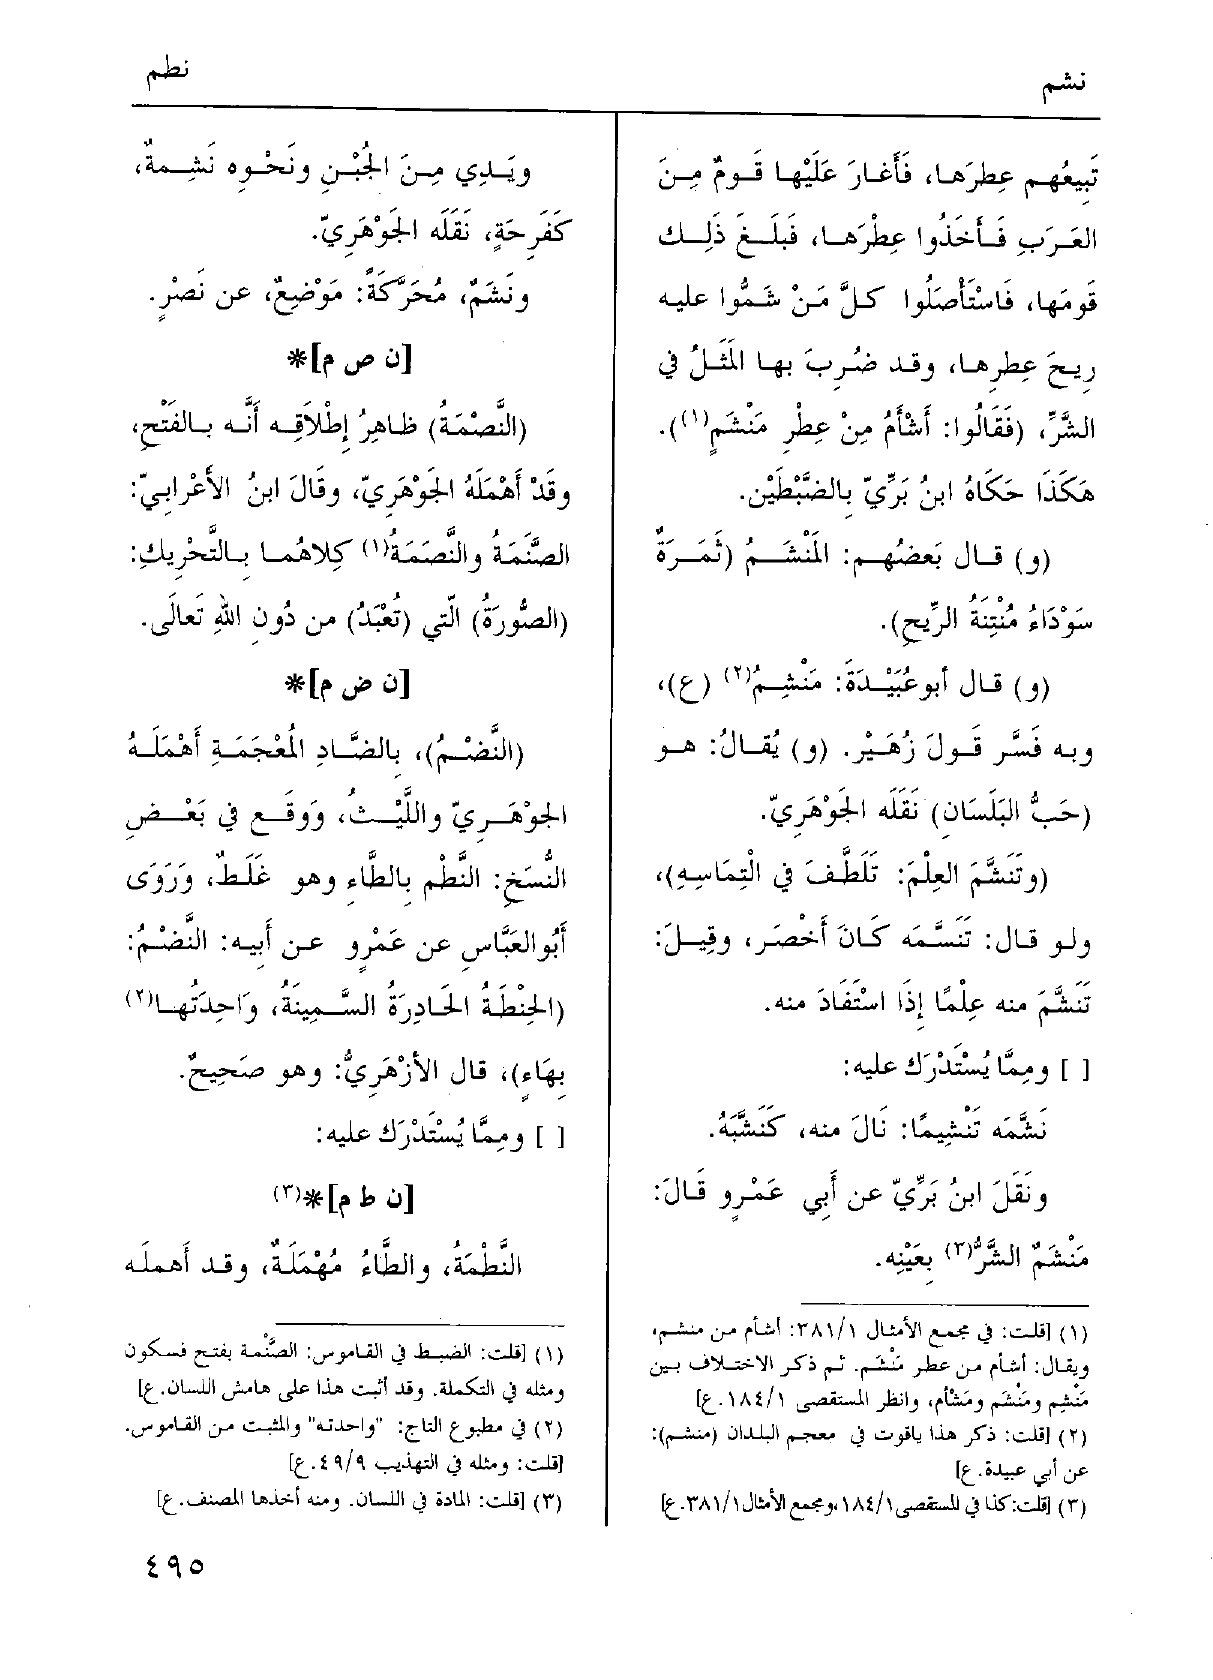 نشم
نطم
تَبِيعُهم عِطرَها، فَأَغارَ عَلَيْها قَومٌ مِنَ
العَرَبِ فَأَخَذُوا عِطْرَها، فَبَلَغَ ذَلِك
قَومَها، فَاسْتَأْصَلُوا كلَّ مَنْ شَمُّوا عليه
رِيحَ عِطرِها، وقد ضُرِبَ بها المَثَلُ في
الشَّرِّ، (فَقَالُوا: أَشْأَمُ مِنْ عِطْرِ مَنْشَمٍ(١)).
هَكَذَا حَكَاهُ ابنُ بَرِّيّ بالضَّبْطَيْن.
(و) قال بَعضُهم: المَنْشَمُ (ثَمَرَةٌ
سَوْدَاءُ مُنْتِنَةُ الرِّيْحِ).
(و) قال أبوعُبَيْدَةَ: مَنْشِمُ(٢) (ع)،
وبه فَسَّر قَولَ زُهَيْر. (و) يُقالُ: هو
(حَبُّ البَلَسَان) نَقَلَه الجَوْهَرِيّ.
(وتَنَشَّمَ العِلْمَ: تَلَطَّفَ في الْتِمَاسِهِ)،
ولو قال: تَنَسَّمَه كَانَ أَخْصَر، وقِيلَ:
تَنَشَّمَ منه عِلْمًا إِذَا اسْتَفَادَ منه.
[ ] ومِمَّا يُسْتَدْرَك عليه:
نَشَّمَه تَنْشِيمًا: نَالَ منه، كَنَشَّبَهُ.
ونَقَلَ ابنُ بَرِّيّ عن أَبِي عَمْرٍو قَالَ:
مَنْشَمٌ الشَّرُّ(٣) بِعَيْنِه.
(١) [قلت: في مجمع الأمثال ٣٨١/١: أشأم من منشم،
ويقال: أشأم من عطر مَنْشم. ثم ذكر الاختلاف بين
مَنْشِم ومَنْشَم ومَشْأم، وانظر المستقصى ١٨٤/١.ع]
(٢) [قلت: ذكر هذا ياقوت في معجم البلدان (منشم):
عن أبي عبيدة. ع]
(٣) [قلت: كذا في المستقصى ١٨٤/١، ومجمع الأمثال ٣٨١/١.ع]
ويَدِي مِنَ الجُبْنِ ونَحْوِه نَشِمةٌ،
كَفَرِحَةٍ، نَقَلَه الجَوْهَرِيّ.
ونَشَمٌ، مُحَرَّكَةً: مَوْضِعٌ، عن نَصْرٍ.
[ن ص م]*
(النَّصْمَةُ) ظاهِرُ إِطْلَاقِه أَنَّه بالفَتْحِ،
وقَدْ أَهْمَلَهُ الجَوْهَرِيّ، وقَالَ ابنُ الأَعْرابيّ:
الصَّنَمَةُ والنَّصَمَةُ(١) كِلاهُما بالتَّحْرِيك:
(الصُّورَةُ) الَّتي (تُعْبَدُ) من دُونِ اللهِ تَعالَى.
[ن ض م]*
(النَّضْمُ)، بالضَّادِ المُعْجَمَةِ أَهْمَلَهُ
الجَوْهَرِيّ واللَّيْثُ، وَوَقَع في بَعْضِ
النُّسَخِ: النَّطْم بالطَّاءِ وهو غَلَطٌ، وَرَوَى
أَبُوالعَبَّاسِ عن عَمْرٍو عن أَبيه: النَّضْمُ:
(الحِنْطَةُ الحَادِرَةُ السَّمِينَةُ، وَاحِدَتُها(٢)
بِهَاءٍ)، قال الأَزْهَرِيُّ: وهو صَحِيحٌ.
[ ] ومِمَّا يُسْتَدْرَك عليه:
[ن ط م]*(٣)
النَّطْمَةُ، والطَّاءُ مُهْمَلَةٌ، وقد أَهمله
(١) [قلت: الضبط في القاموس: الصَّنْمة بفتح فسكون
ومثله في التكملة. وقد أثبت هذا على هامش اللسان.ع]
(٢) في مطبوع التاج: "واحدته" والمثبت من القاموس.
[قلت: ومثله في التهذيب ٤٩/٩.ع]
(٣) [قلت: المادة في اللسان. ومنه أخذها المصنف.ع]
٤٩٥